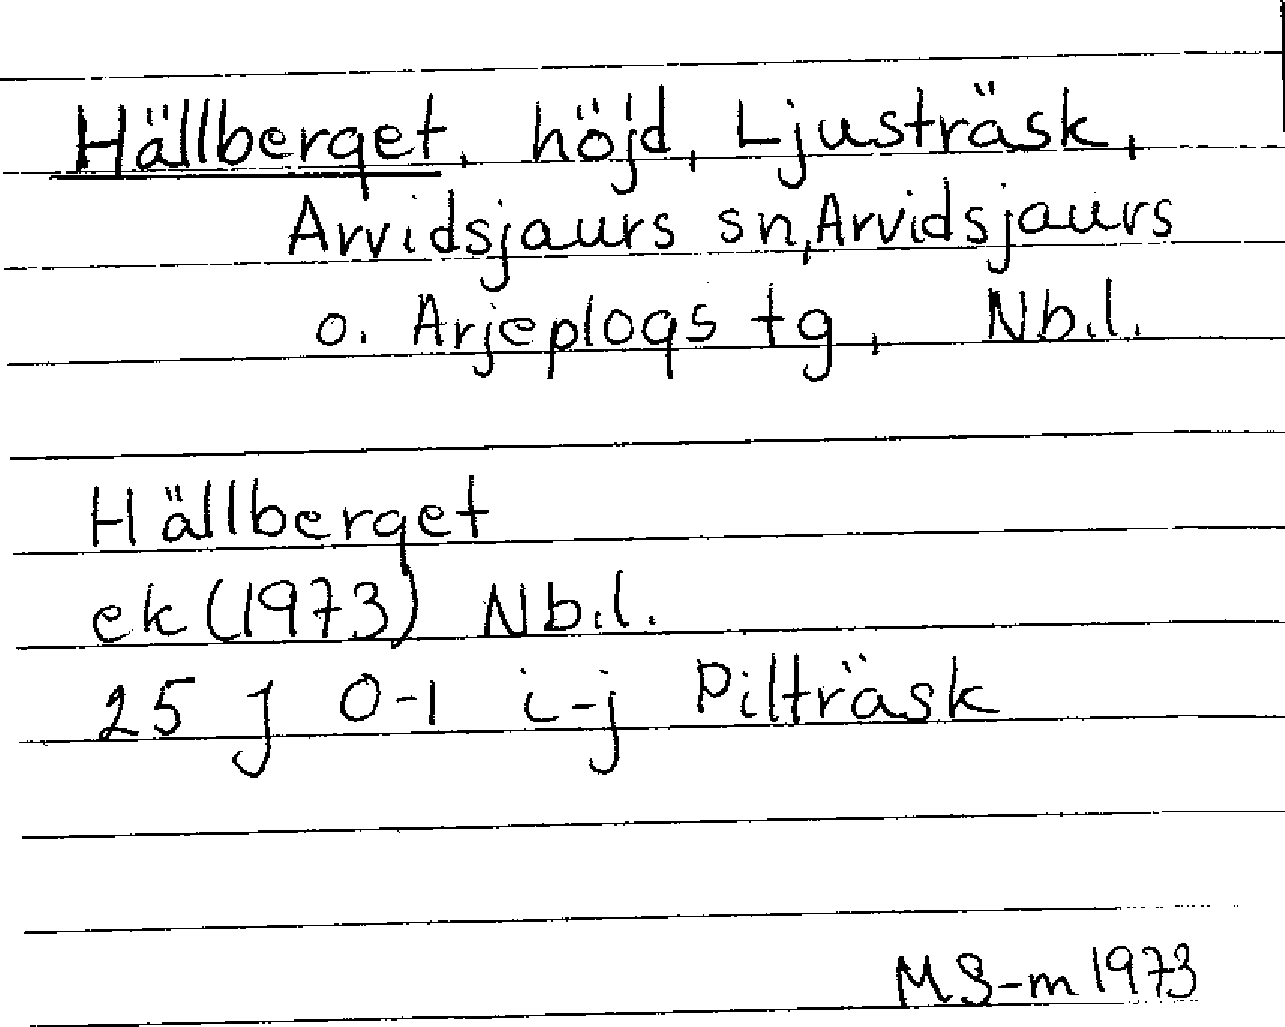 Hällberget, höjd, Ljusträsk,
Arvidsjaurs sn, Arvidsjaurs
o. Arjeplogs tg, Nb.l.
Hällberget
ek (1973) Nb.l.
25 J 0-1 i-j Pilträsk
MS-m 1973